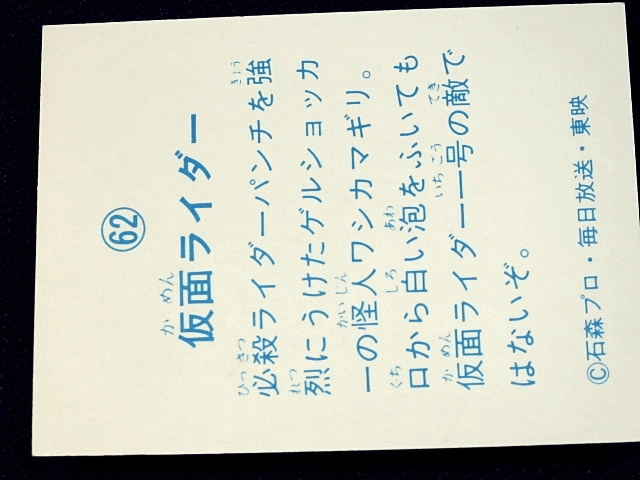 62
仮面ライダー
必殺ライダーパンチを強
烈にうけたゲルショッカ
ーの怪人ワシカマギリ。
口から白い泡をふいても
仮面ライダー一号の敵で
はないぞ。
©石森プロ・毎日放送・東映